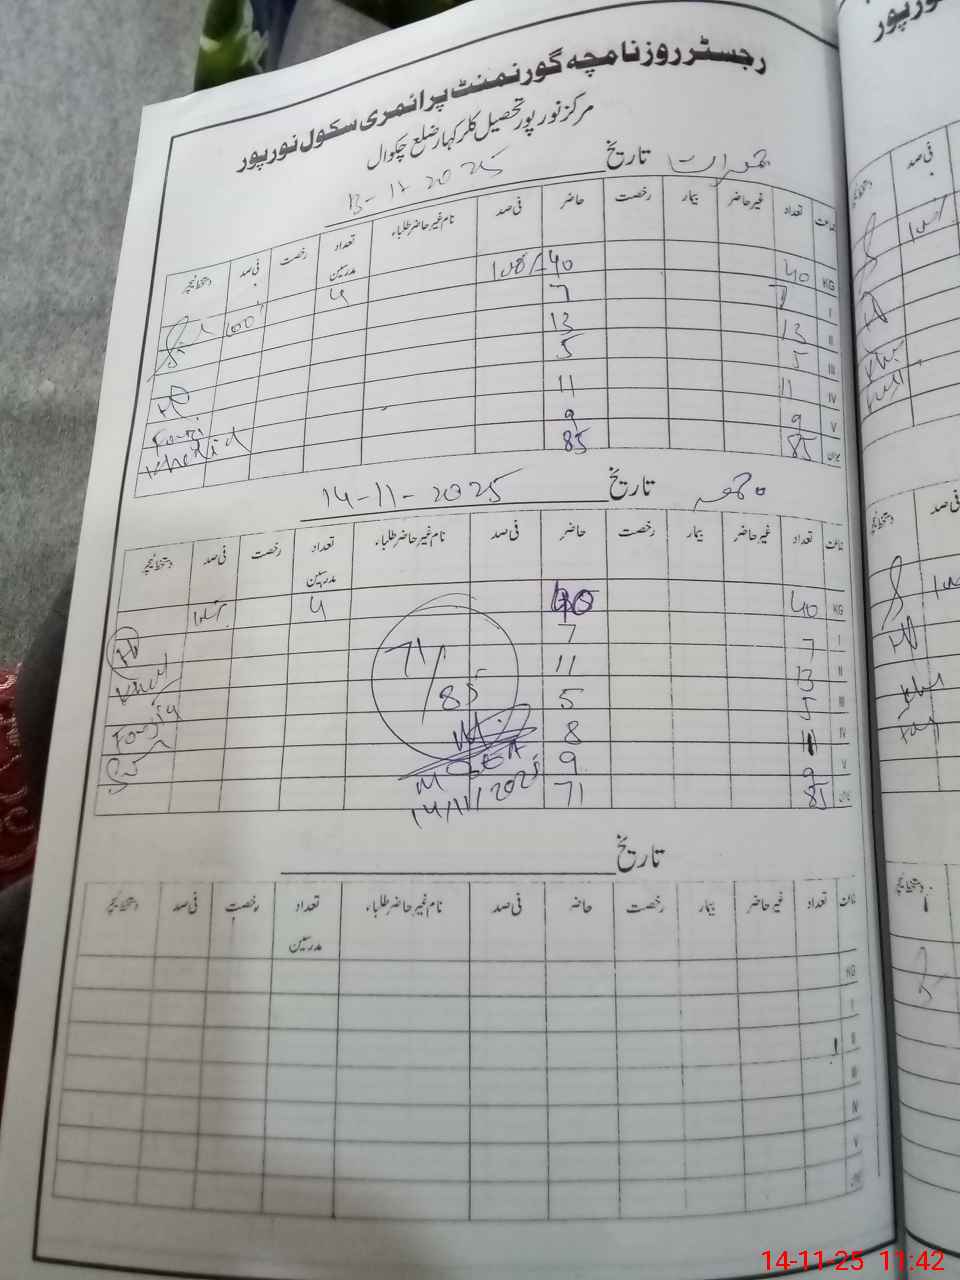 رجسٹر روزنامچہ گورنمنٹ پرائمری سکول نورپور
مرکز نورپور تحصیل کلرکہار ضلع چکوال
جمعرات تاریخ 13-11-2025
جماعت تعداد غیر حاضر بیمار رخصت حاضر فی صد نام غیر حاضر طلباء تعداد مدرسین رخصت فی صد دستخط ٹیچر
KG 40 40 100% 4 100%
I 7 7
II 13 13
III 5 5
IV 11 11
V 9 9
میزان 85 85
Fouzi
Khalid
جمعہ تاریخ 14-11-2025
جماعت تعداد غیر حاضر بیمار رخصت حاضر فی صد نام غیر حاضر طلباء تعداد مدرسین رخصت فی صد دستخط ٹیچر
KG 40 4
I 7 7
II 13 11
III 5 5
IV 11 8
V 9 9
میزان 85 71
Fouzia
71/85
MSEA
14/11/2025
تاریخ
جماعت تعداد غیر حاضر بیمار رخصت حاضر فی صد نام غیر حاضر طلباء تعداد مدرسین رخصت فی صد دستخط ٹیچر
KG
I
II
III
IV
V
میزان
نورپور
فی صد
دستخط ٹیچر
فی صد
دستخط ٹیچر
دستخط ٹیچر
14-11-25 11:42